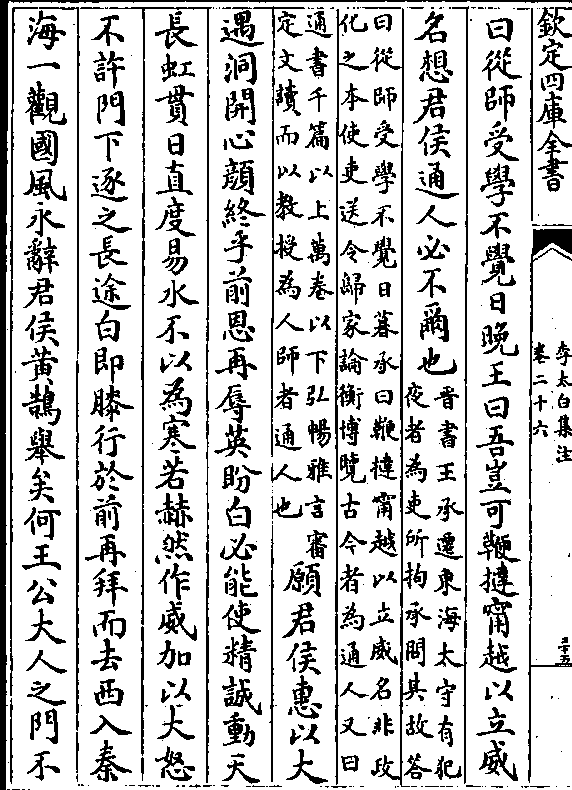 欽定四庫全書
李太白集注
卷二十六
三十五
曰從師受學不覺日晚王曰吾豈可鞭撻甯越以立威
名想君侯通人必不爾也
晉書王承遷東海太守有犯
夜者為吏所拘承問其故答
曰從師受學不覺日暮承曰鞭撻甯越以立威名非政
化之本使吏送令歸家論衡博覽古今者為通人又曰
通書千篇以上萬卷以下弘暢雅言審
定文讀而以教授為人師者通人也
願君侯惠以大
遇洞開心顔終乎前恩再辱英盼白必能使精誠動天
長虹貫日直度易水不以為寒若赫然作威加以大怒
不許門下逐之長途白即膝行於前再拜而去西入秦
海一觀國風永辭君侯黄鵠舉矣何王公大人之門不